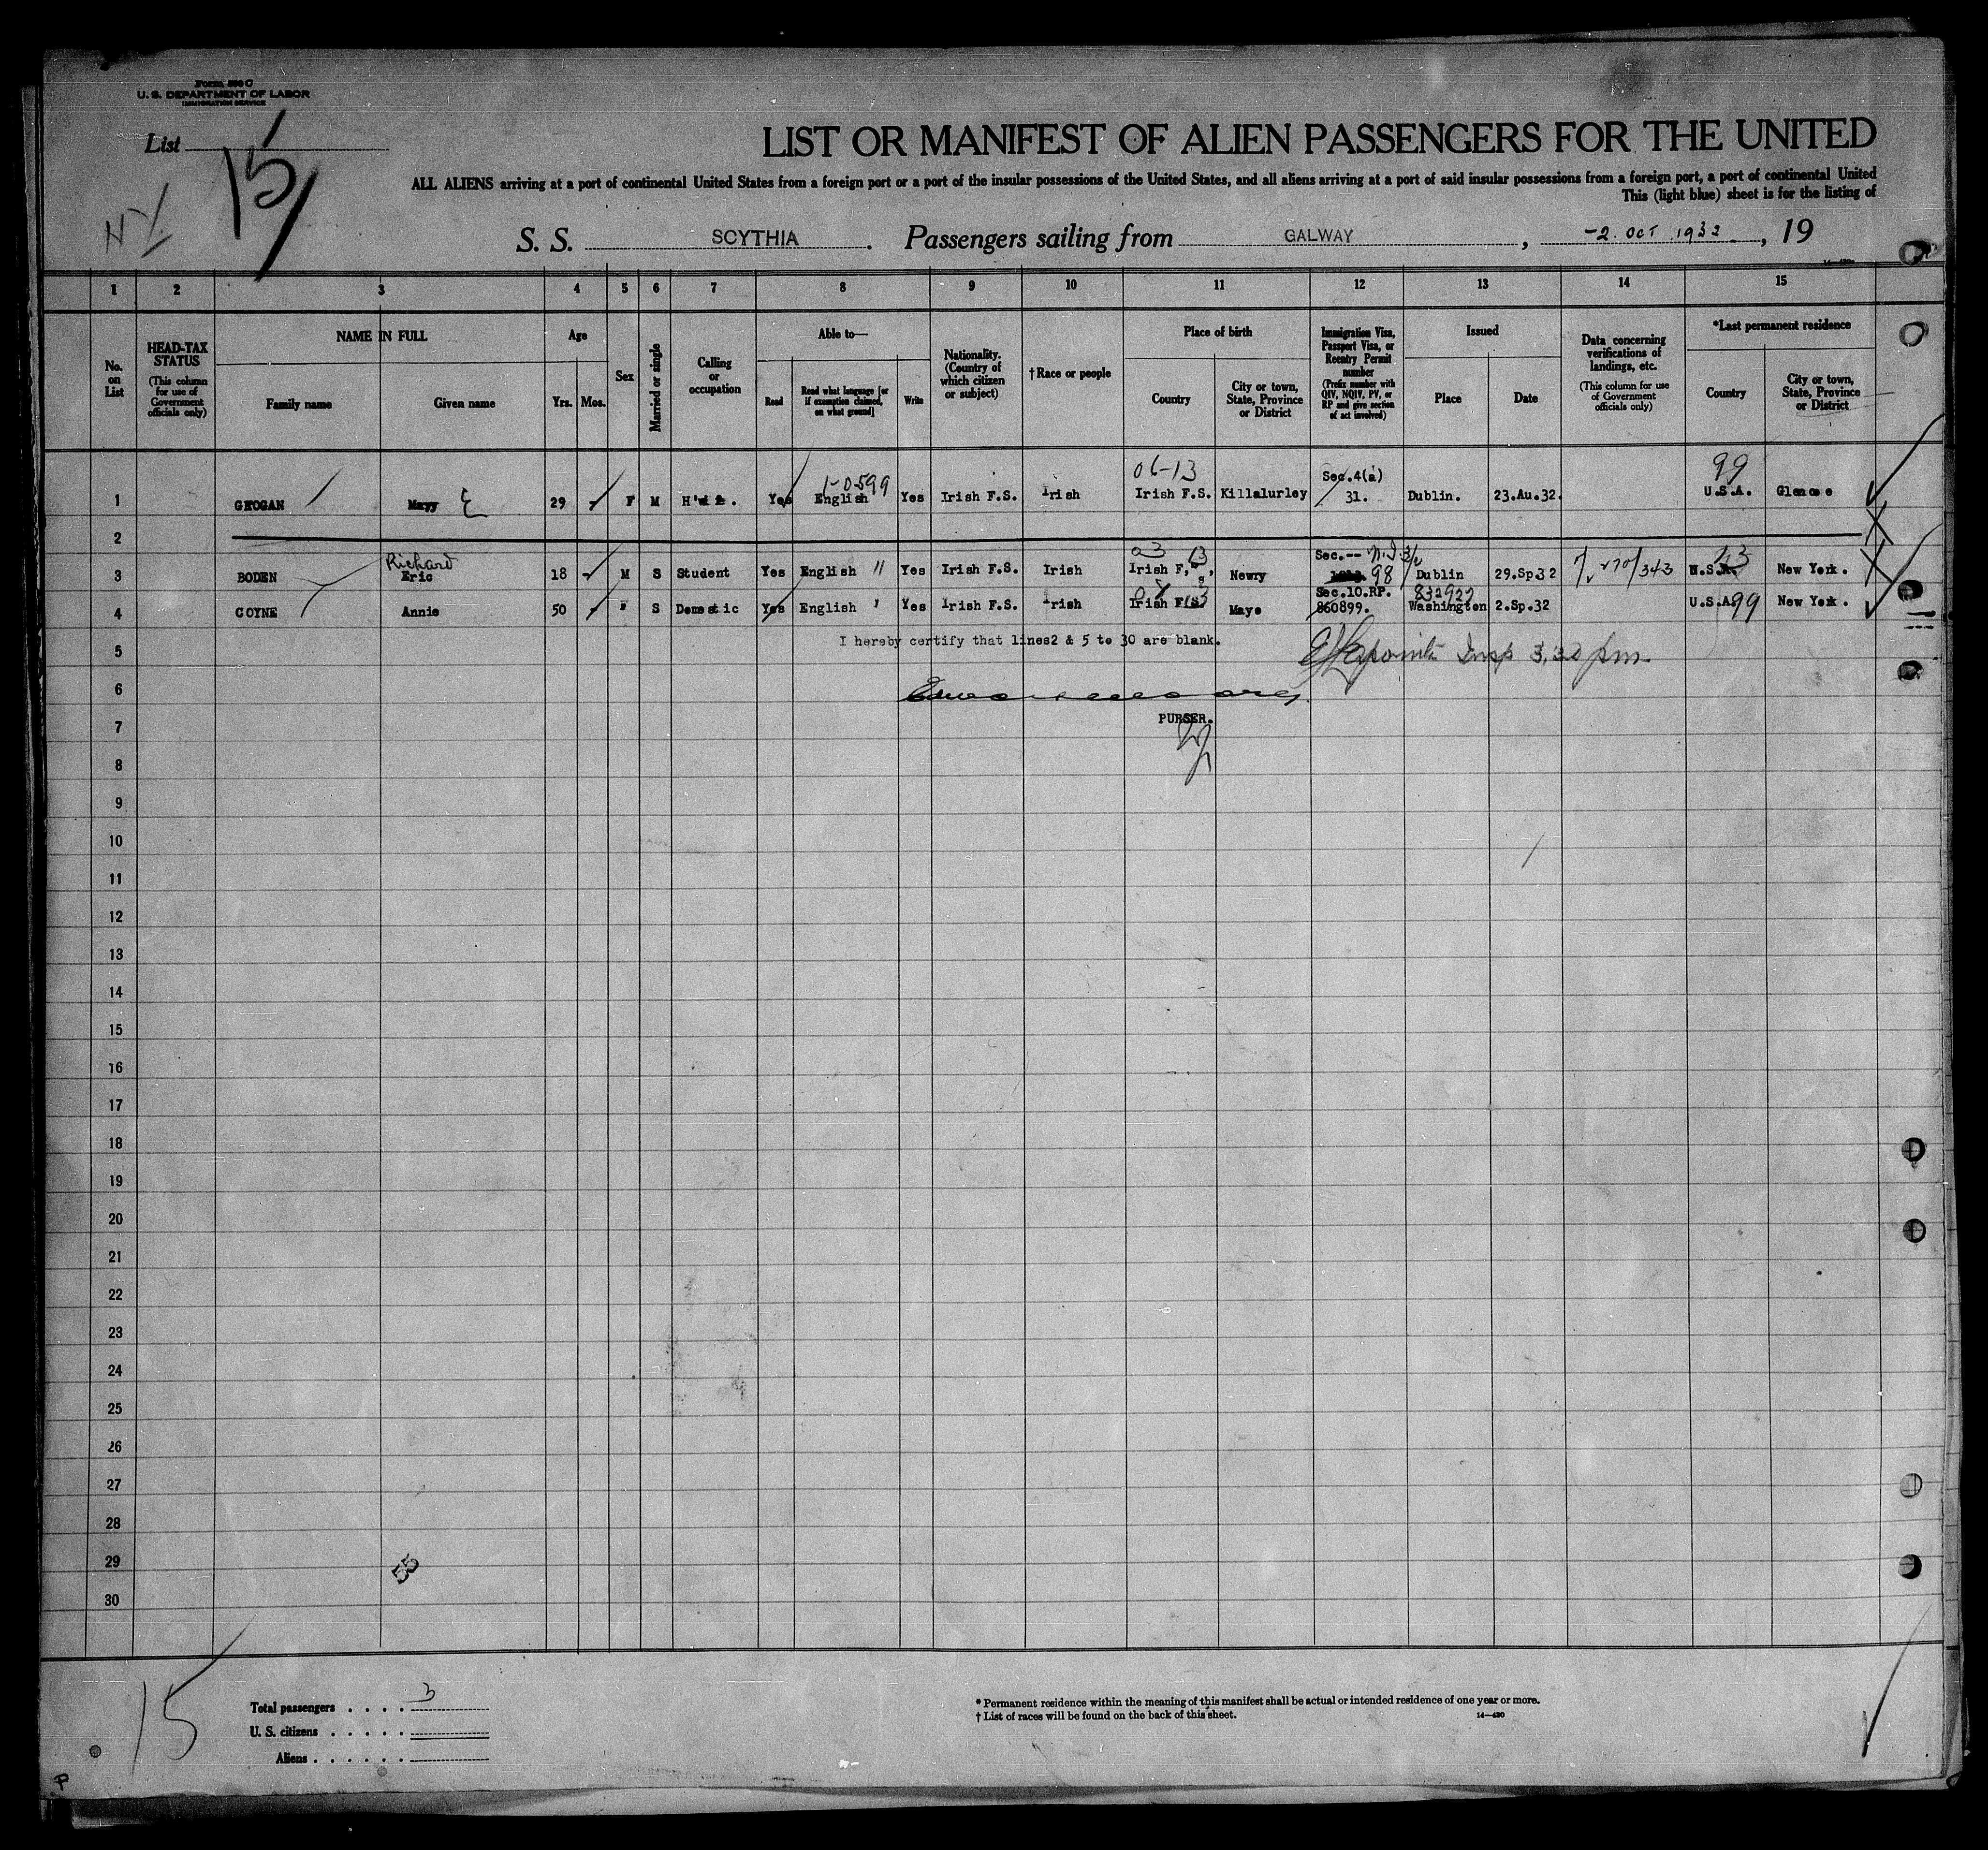 Form 500 C
U. S. DEPARTMENT OF LABOR
IMMIGRATION SERVICE
List 15
NY
LIST OR MANIFEST OF ALIEN PASSENGERS FOR THE UNITED
ALL ALIENS arriving at a port of continental United States from a foreign port or a port of the insular possessions of the United States, and all aliens arriving at a port of said insular possessions from a foreign port, a port of continental United
This (light blue) sheet is for the listing of
S. S. SCYTHIA. Passengers sailing from GALWAY, -2. OCT. 1932, 19
1 2 3 4 5 6 7 8 9 10 11 12 13 14 15
No. on List
HEAD-TAX STATUS (This column for use of Government officials only)
NAME IN FULL
Family name
Given name
Age
Yrs. Mos.
Sex
Married or single
Calling or occupation
Able to—
Read
Read what language [or if exemption claimed, on what ground]
Write
Nationality. (Country of which citizen or subject)
†Race or people
Place of birth
Country
City or town, State, Province or District
Immigration Visa, Passport Visa, or Reentry Permit number (Prefix number with QIV, NQIV, PV, or RP and give section of act involved)
Issued
Place
Date
Data concerning verifications of landings, etc. (This column for use of Government officials only)
*Last permanent residence
Country
City or town, State, Province or District
06-13 Sec.4(a) 99
1-0599
1 GROGAN Mary E 29 F M H'wife. Yes English Yes Irish F.S. Irish Irish F.S. Killalurley 31. Dublin. 23.Au.32. U.S.A. Glencoe
2
Richard Sec.--
3 BODEN Eric 18 M S Student Yes English " Yes Irish F.S. Irish Irish F.S. Newry 98 Dublin 29.Sp32 U.S.A. New York.
Sec.10.RP. 832927
4 COYNE Annie 50 F S Domestic Yes English " Yes Irish F.S. Irish Irish F.S. Mayo 860899. Washington 2.Sp.32 U.S.A. 99 New York.
I hereby certify that lines2 & 5 to 30 are blank.
5 Insp 3,30 pm
6
PURSER.
7
8
9
10
11
12
13
14
15
16
17
18
19
20
21
22
23
24
25
26
27
28
29 55
30
15
Total passengers . . . . 3
U. S. citizens . . . . .
Aliens . . . . . .
* Permanent residence within the meaning of this manifest shall be actual or intended residence of one year or more.
† List of races will be found on the back of this sheet. 14—430
P